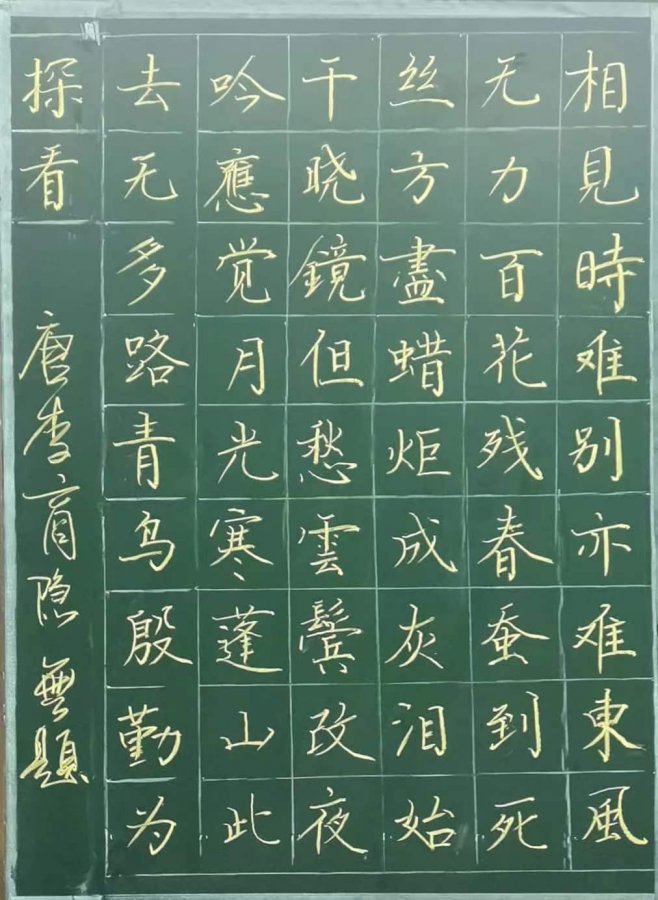 相見時难别亦难東風
无力百花残春蚕到死
丝方盡蜡炬成灰泪始
干晓鏡但愁雲鬓改夜
吟應觉月光寒蓬山此
去无多路青鸟殷勤为
探看
唐李商隐無題